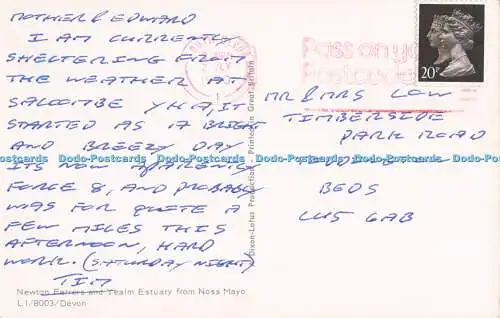 MOTHER & EDWARD
I AM CURRENTLY
SHELTERING FROM
THE WEATHER AT
SALCOMBE YHA, IT
STARTED AS A BRIGHT
AND BREEZY DAY
ITS NOW APARENTLY
FORCE 8, AND PROBABLY
WAS FOR QUITE A
FEW MILES THIS
AFTERNOON, HARD
WORK. (SATURDAY NIGHT)
TIM
Newton Ferrers and Yealm Estuary from Noss Mayo
L1/8003/Devon
Dixon-Lotus Productions Printed in Great Britain
Pass on yo
Postcode
20P
MR & MRS LOW
TIMBERSLOE
PARK ROAD
BEDS
LU5 6AB
Dodo-Postcards Dodo-Postcards Dodo-Postcards Dodo-Postcards Dodo-Postcards Dodo-Postcards